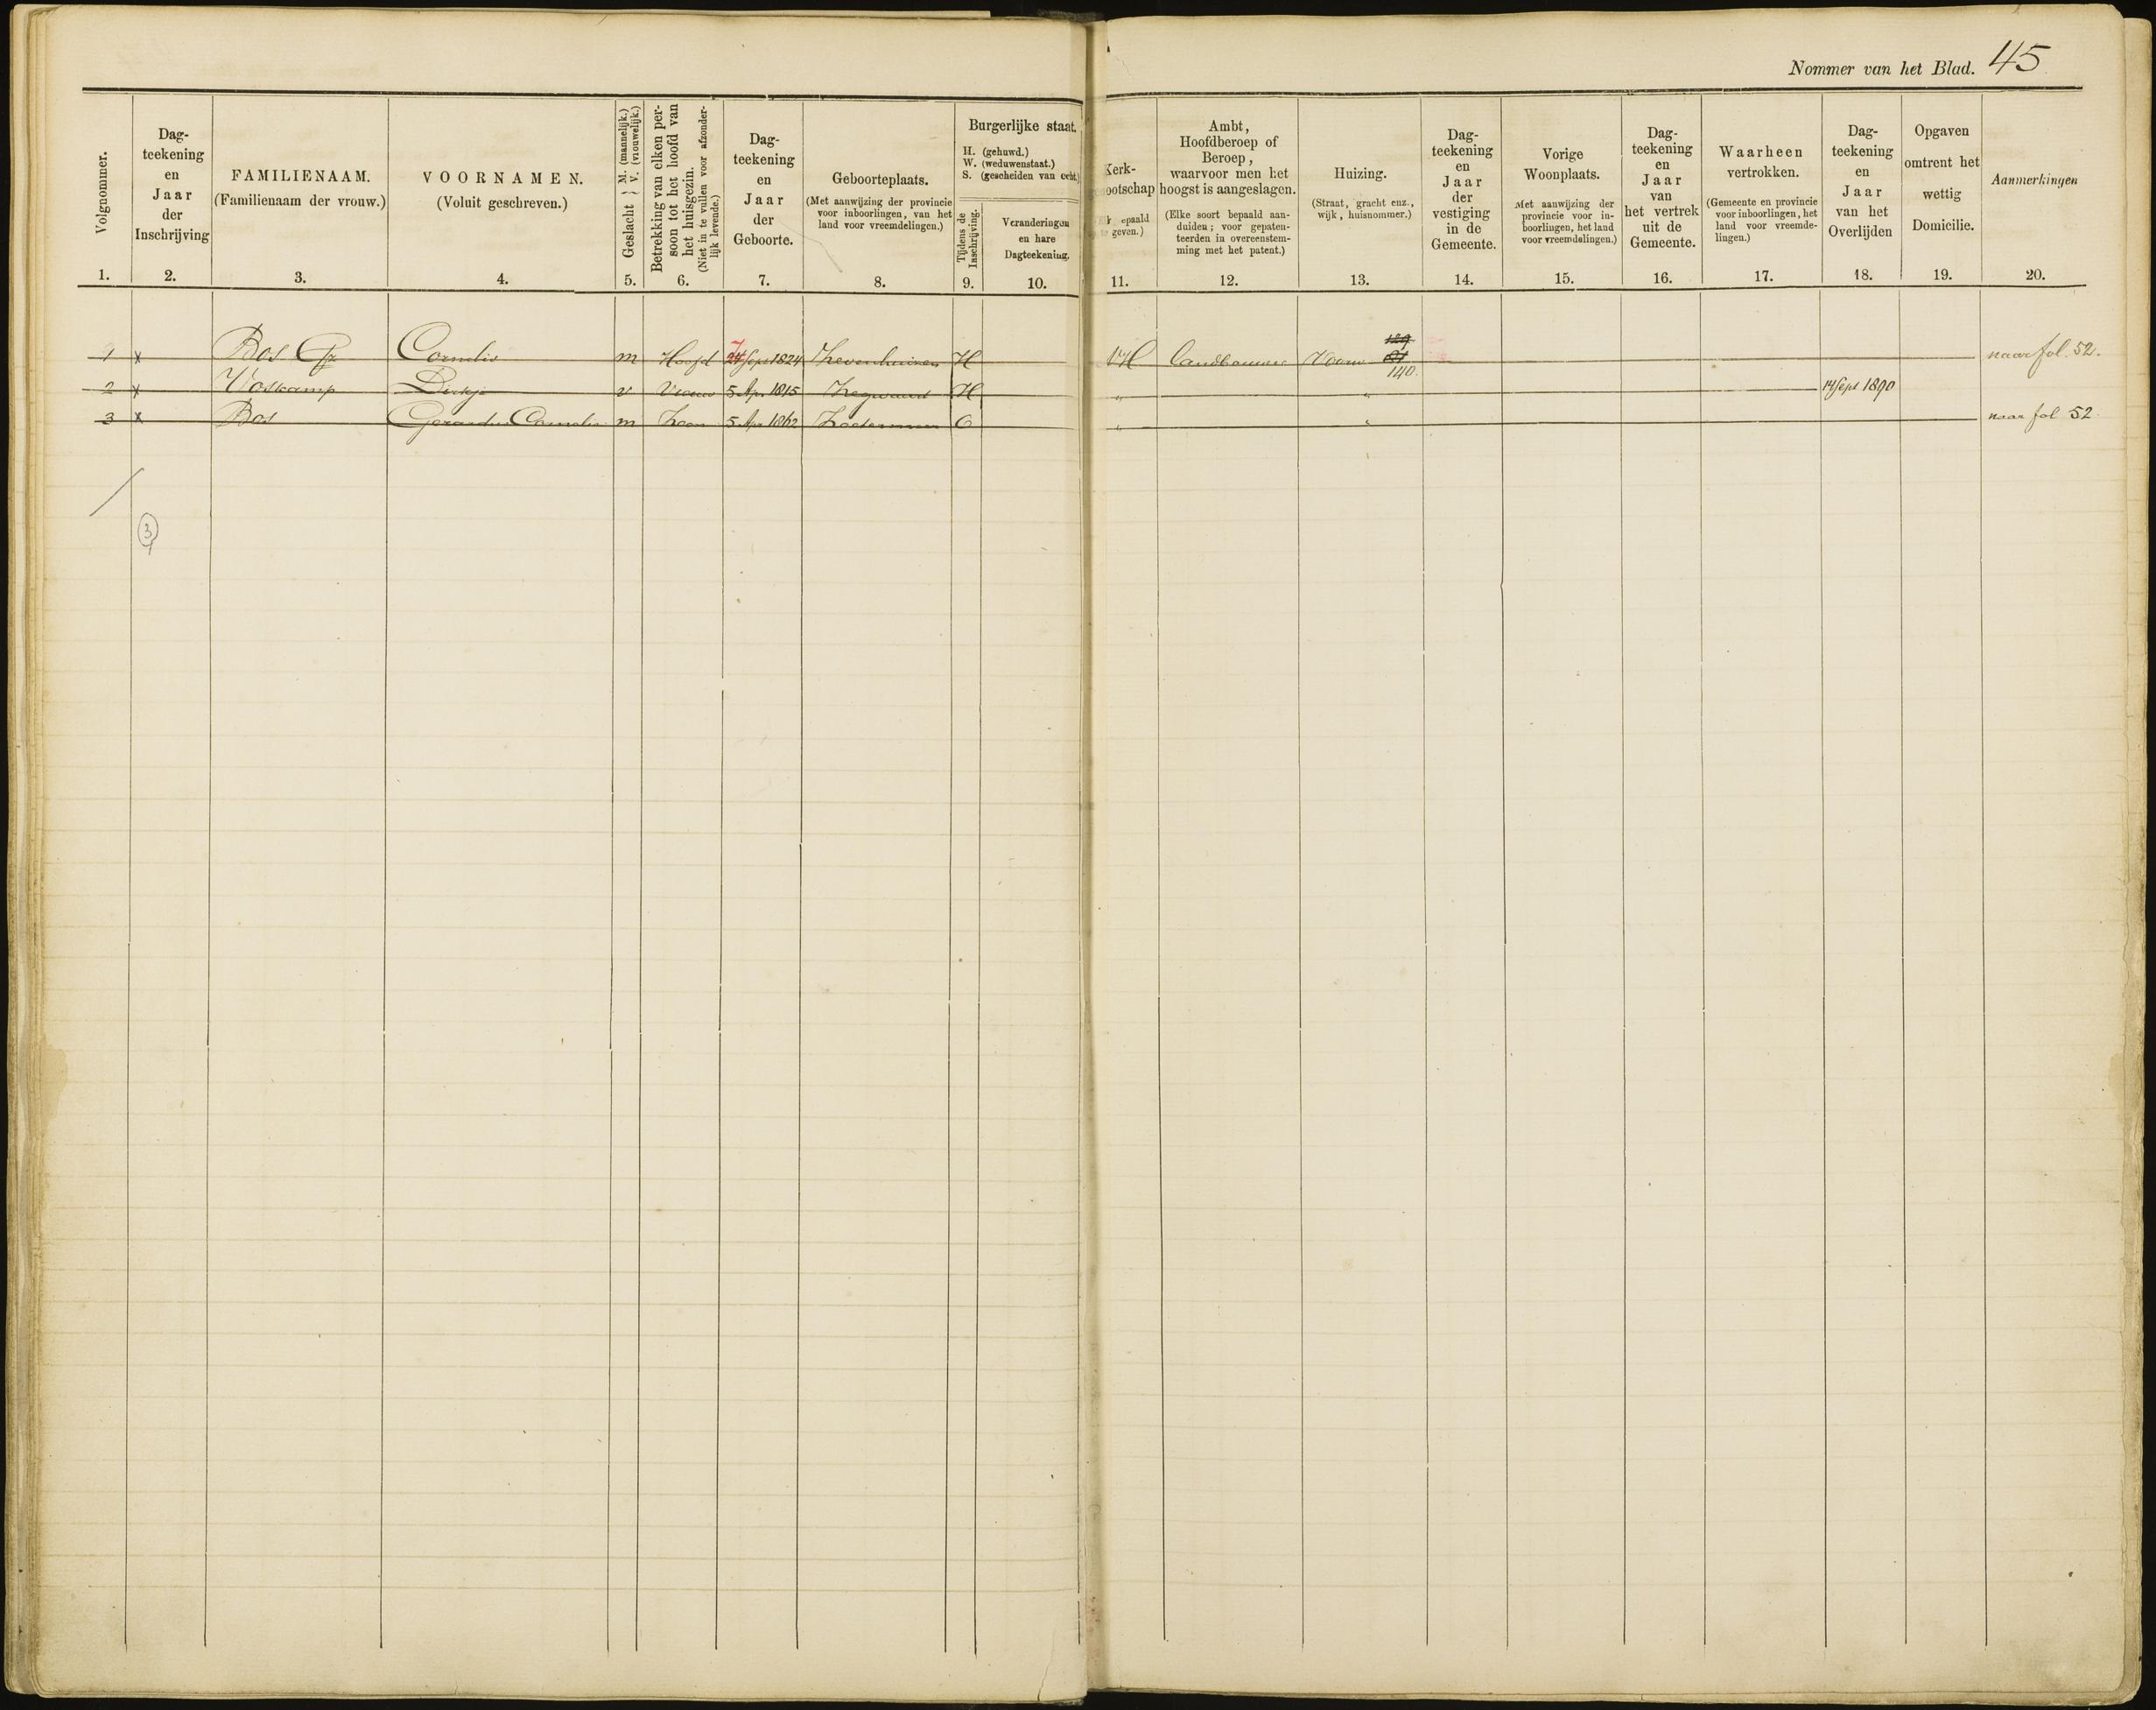 Nommer van het Blad. 45
Volgnommer.
1.
Dag-
teekening
en
Jaar
der
Inschrijving
2.
FAMILIENAAM.
(Familienaam der vrouw.)
3.
VOORNAMEN.
(Voluit geschreven.)
4.
Geslacht } M. (mannelijk.)
V. (vrouwelijk.)
5.
Betrekking van elken per-
soon tot het hoofd van
het huisgezin.
(Niet in te vullen voor afzonder-
lijk levende.)
6.
Dag-
teekening
en
Jaar
der
Geboorte.
7.
Geboorteplaats.
(Met aanwijzing der provincie
voor inboorlingen, van het
land voor vreemdelingen.)
8.
Burgerlijke staat.
H. (gehuwd.)
W. (weduwenstaat.)
S. (gescheiden van echt.)
Tijdens de
Inschrijving.
9.
Veranderingen
en hare
Dagteekening.
10.
Kerk-
ootschap
epaald
geven.)
11.
Ambt,
Hoofdberoep of
Beroep,
waarvoor men het
hoogst is aangeslagen.
(Elke soort bepaald aan-
duiden; voor gepaten-
teerden in overeenstem-
ming met het patent.)
12.
Huizing.
(Straat, gracht enz.,
wijk, huisnommer.)
13.
Dag-
teekening
en
Jaar
der
vestiging
in de
Gemeente.
14.
Vorige
Woonplaats.
Met aanwijzing der
provincie voor in-
boorlingen, het land
voor vreemdelingen.)
15.
Dag-
teekening
en
Jaar
van
het vertrek
uit de
Gemeente.
16.
Waarheen
vertrokken.
(Gemeente en provincie
voor inboorlingen, het
land voor vreemde-
lingen.)
17.
Dag-
teekening
en
Jaar
van het
Overlijden
18.
Opgaven
omtrent het
wettig
Domicilie.
19.
Aanmerkingen
20.
1 x Bos Gz Cornelis m Hoofd 7 Sept 1824 Zevenhuizen H NH landbouwer Voorw 129 140 naar fol. 52.
2 x Voskamp Dirkje v Vrouw 5 Ap. 1815 Zegwaard H " " 14 Sept 1890
3 x Bos Gerardus Cornelis m Zoon 5 Apr 1862 Zoetermeer O " " naar fol 52.
3